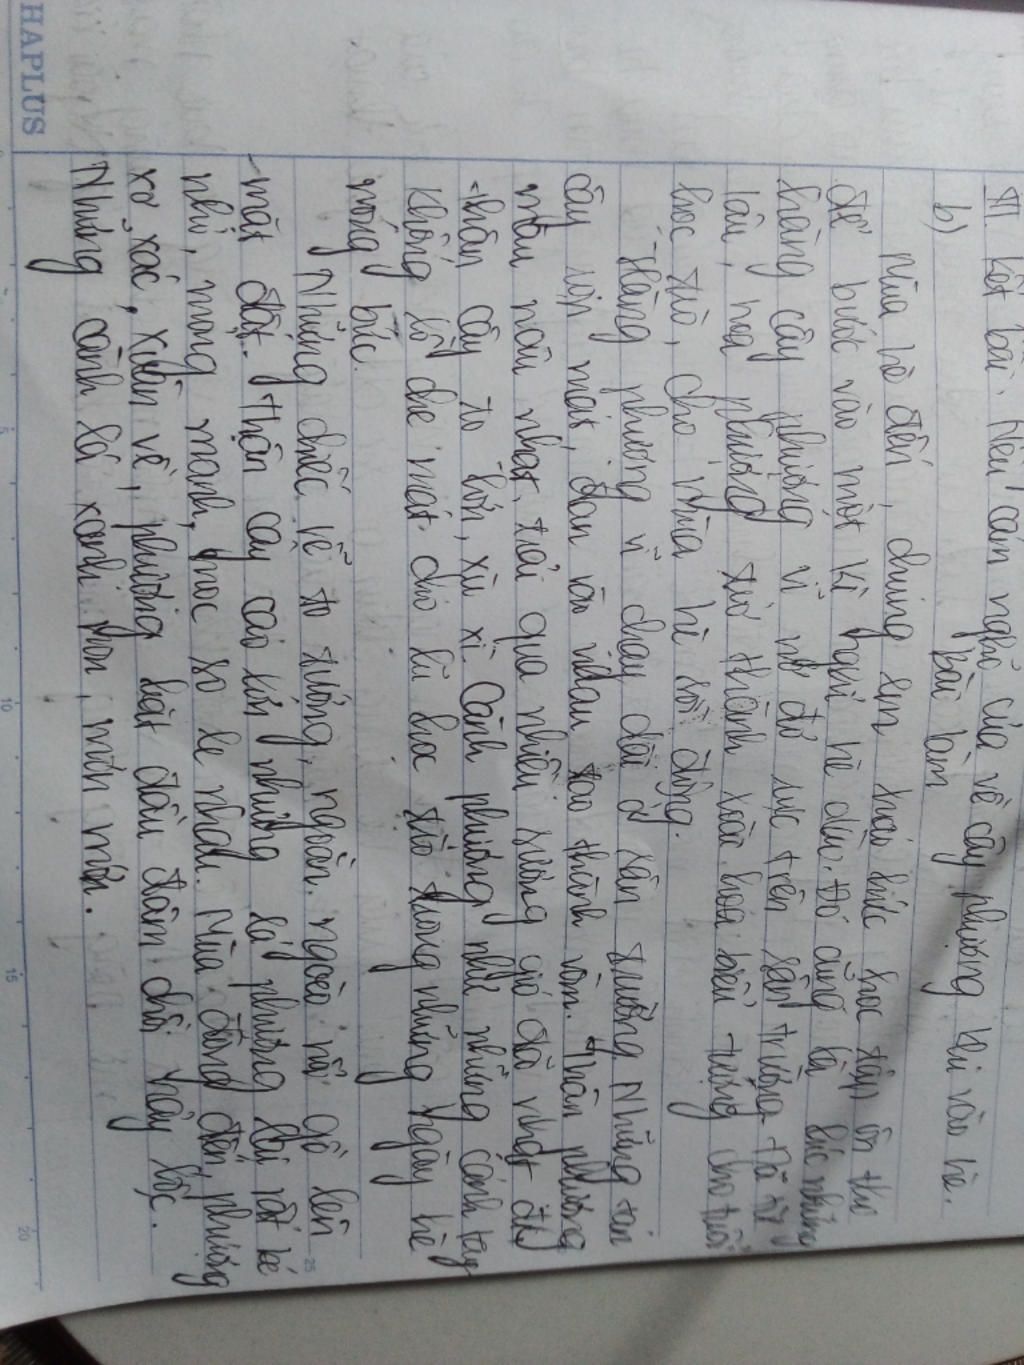 HAPLUS
III. Kết bài: Nêu cảm nghĩ của về cây phượng khi vào hè.
b) Bài làm
Mùa hè đến, chúng em háo hức học tập ôn thi
để bước vào một kì nghỉ hè dài. Đó cũng là lúc những
hàng cây phượng vĩ nở đỏ rực trên sân trường. Đã từ
lâu, hoa phượng trở thành loài hoa biểu tượng cho tuổi
học trò, cho mùa hè sôi động.
Hàng phượng vĩ chạy dài ở sân trường. Những tán
cây lợp mát, đan vào nhau tạo thành vòm. Thân phượng
màu nâu nhạt, trải qua nhiều sương gió đã nhạt đi.
Thân cây to lớn, xù xì. Cành phượng như những cánh tay
khổng lồ che mát cho lũ học trò trong những ngày hè
nóng bức.
Những chiếc rễ to tướng, ngoằn ngoèo nổi gồ lên
mặt đất. Thân cây cao lớn nhưng lá phượng lại rất bé
nhỏ, mong manh, mọc so le nhau. Mùa đông đến, phượng
xơ xác, xuân về, phượng bắt đầu đâm chồi nảy lộc.
Những cành lá xanh non, mơn mởn.
5
10
15
20
25